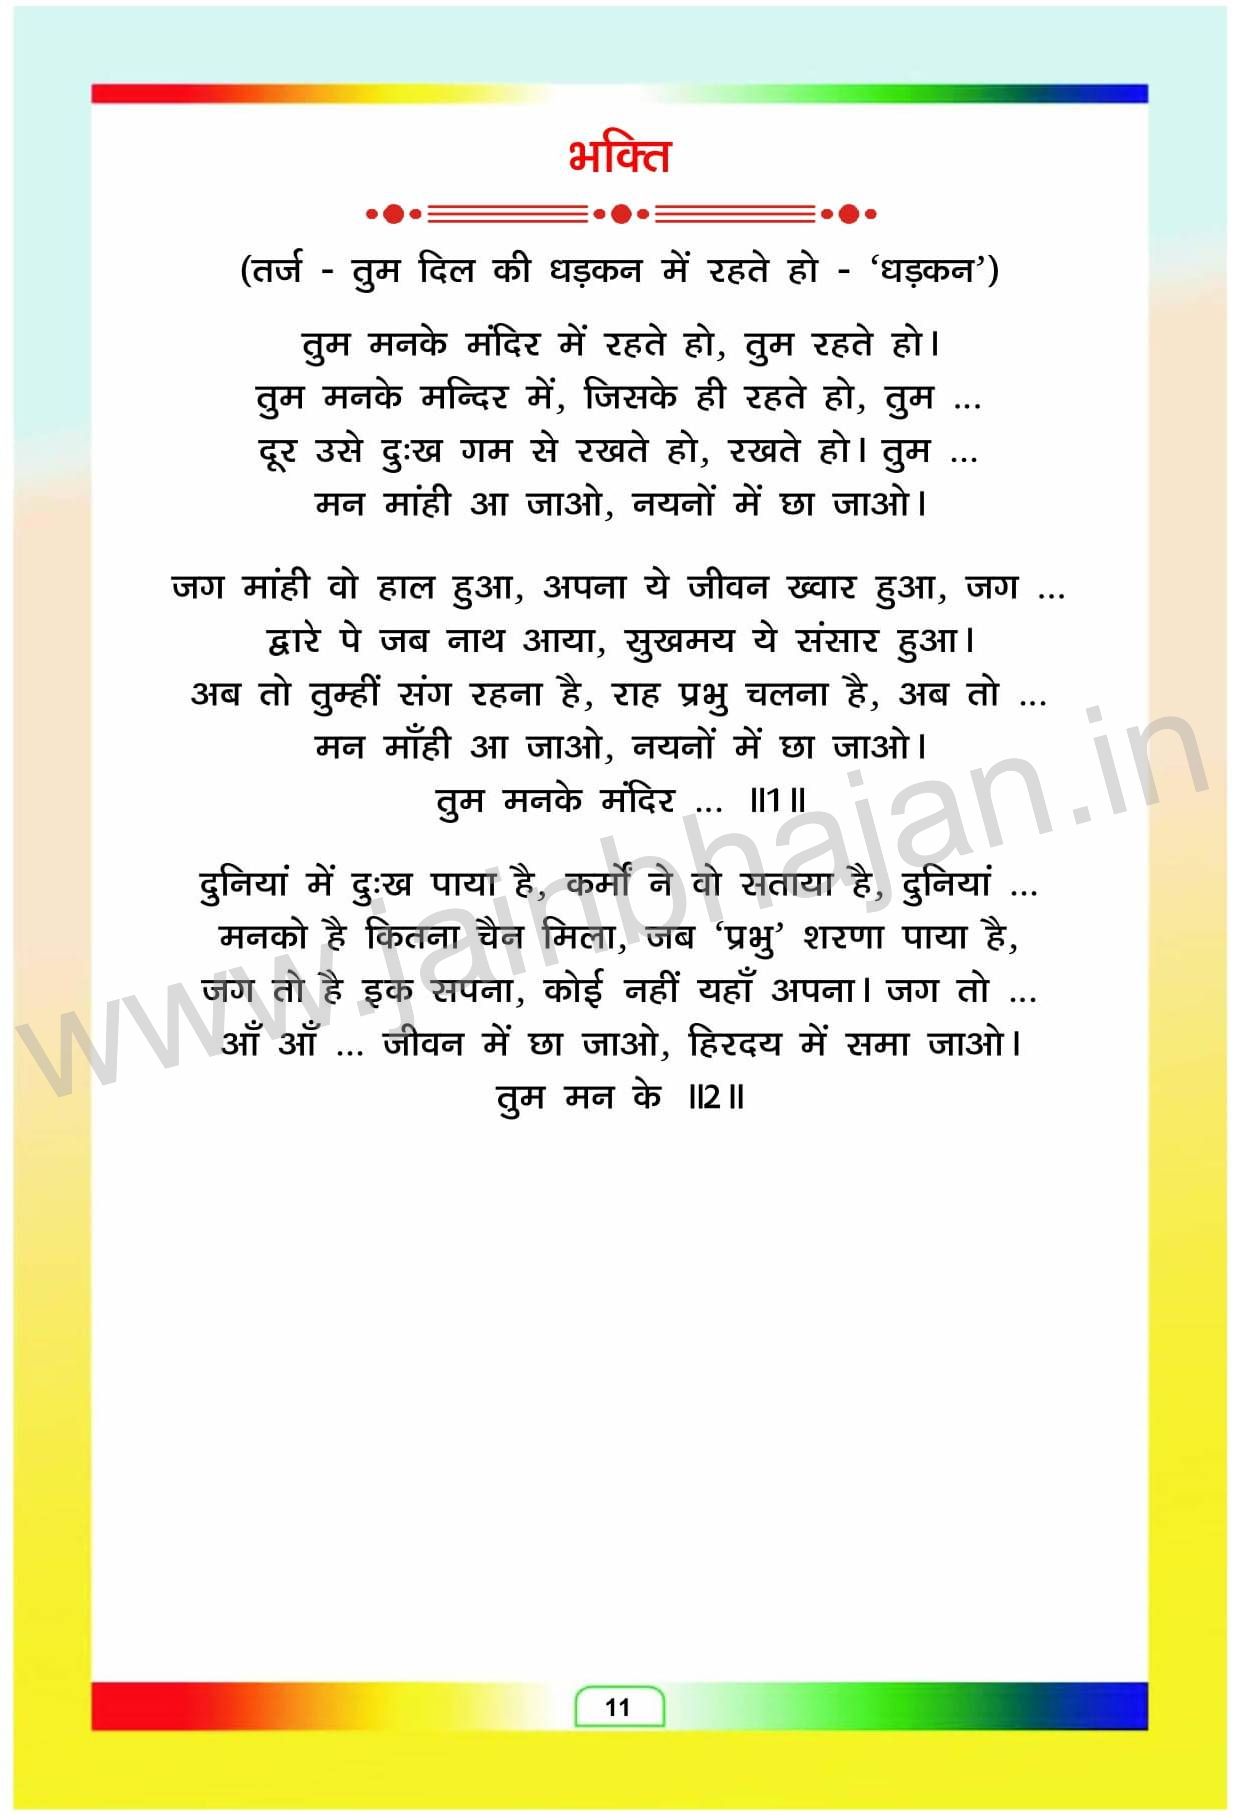 भक्ति
(तर्ज - तुम दिल की धड़कन में रहते हो - ‘धड़कन’)
तुम मनके मंदिर में रहते हो, तुम रहते हो।
तुम मनके मन्दिर में, जिसके ही रहते हो, तुम ...
दूर उसे दुःख गम से रखते हो, रखते हो। तुम ...
मन मांही आ जाओ, नयनों में छा जाओ।
जग मांही वो हाल हुआ, अपना ये जीवन ख्वार हुआ, जग ...
द्वारे पे जब नाथ आया, सुखमय ये संसार हुआ।
अब तो तुम्हीं संग रहना है, राह प्रभु चलना है, अब तो ...
मन माँही आ जाओ, नयनों में छा जाओ।
तुम मनके मंदिर ... ॥1॥
दुनियां में दुःख पाया है, कर्मों ने वो सताया है, दुनियां ...
मनको है कितना चैन मिला, जब ‘प्रभु’ शरणा पाया है,
जग तो है इक सपना, कोई नहीं यहाँ अपना। जग तो ...
आँ आँ ... जीवन में छा जाओ, हिरदय में समा जाओ।
तुम मन के ॥2॥
www.jainbhajan.in
11